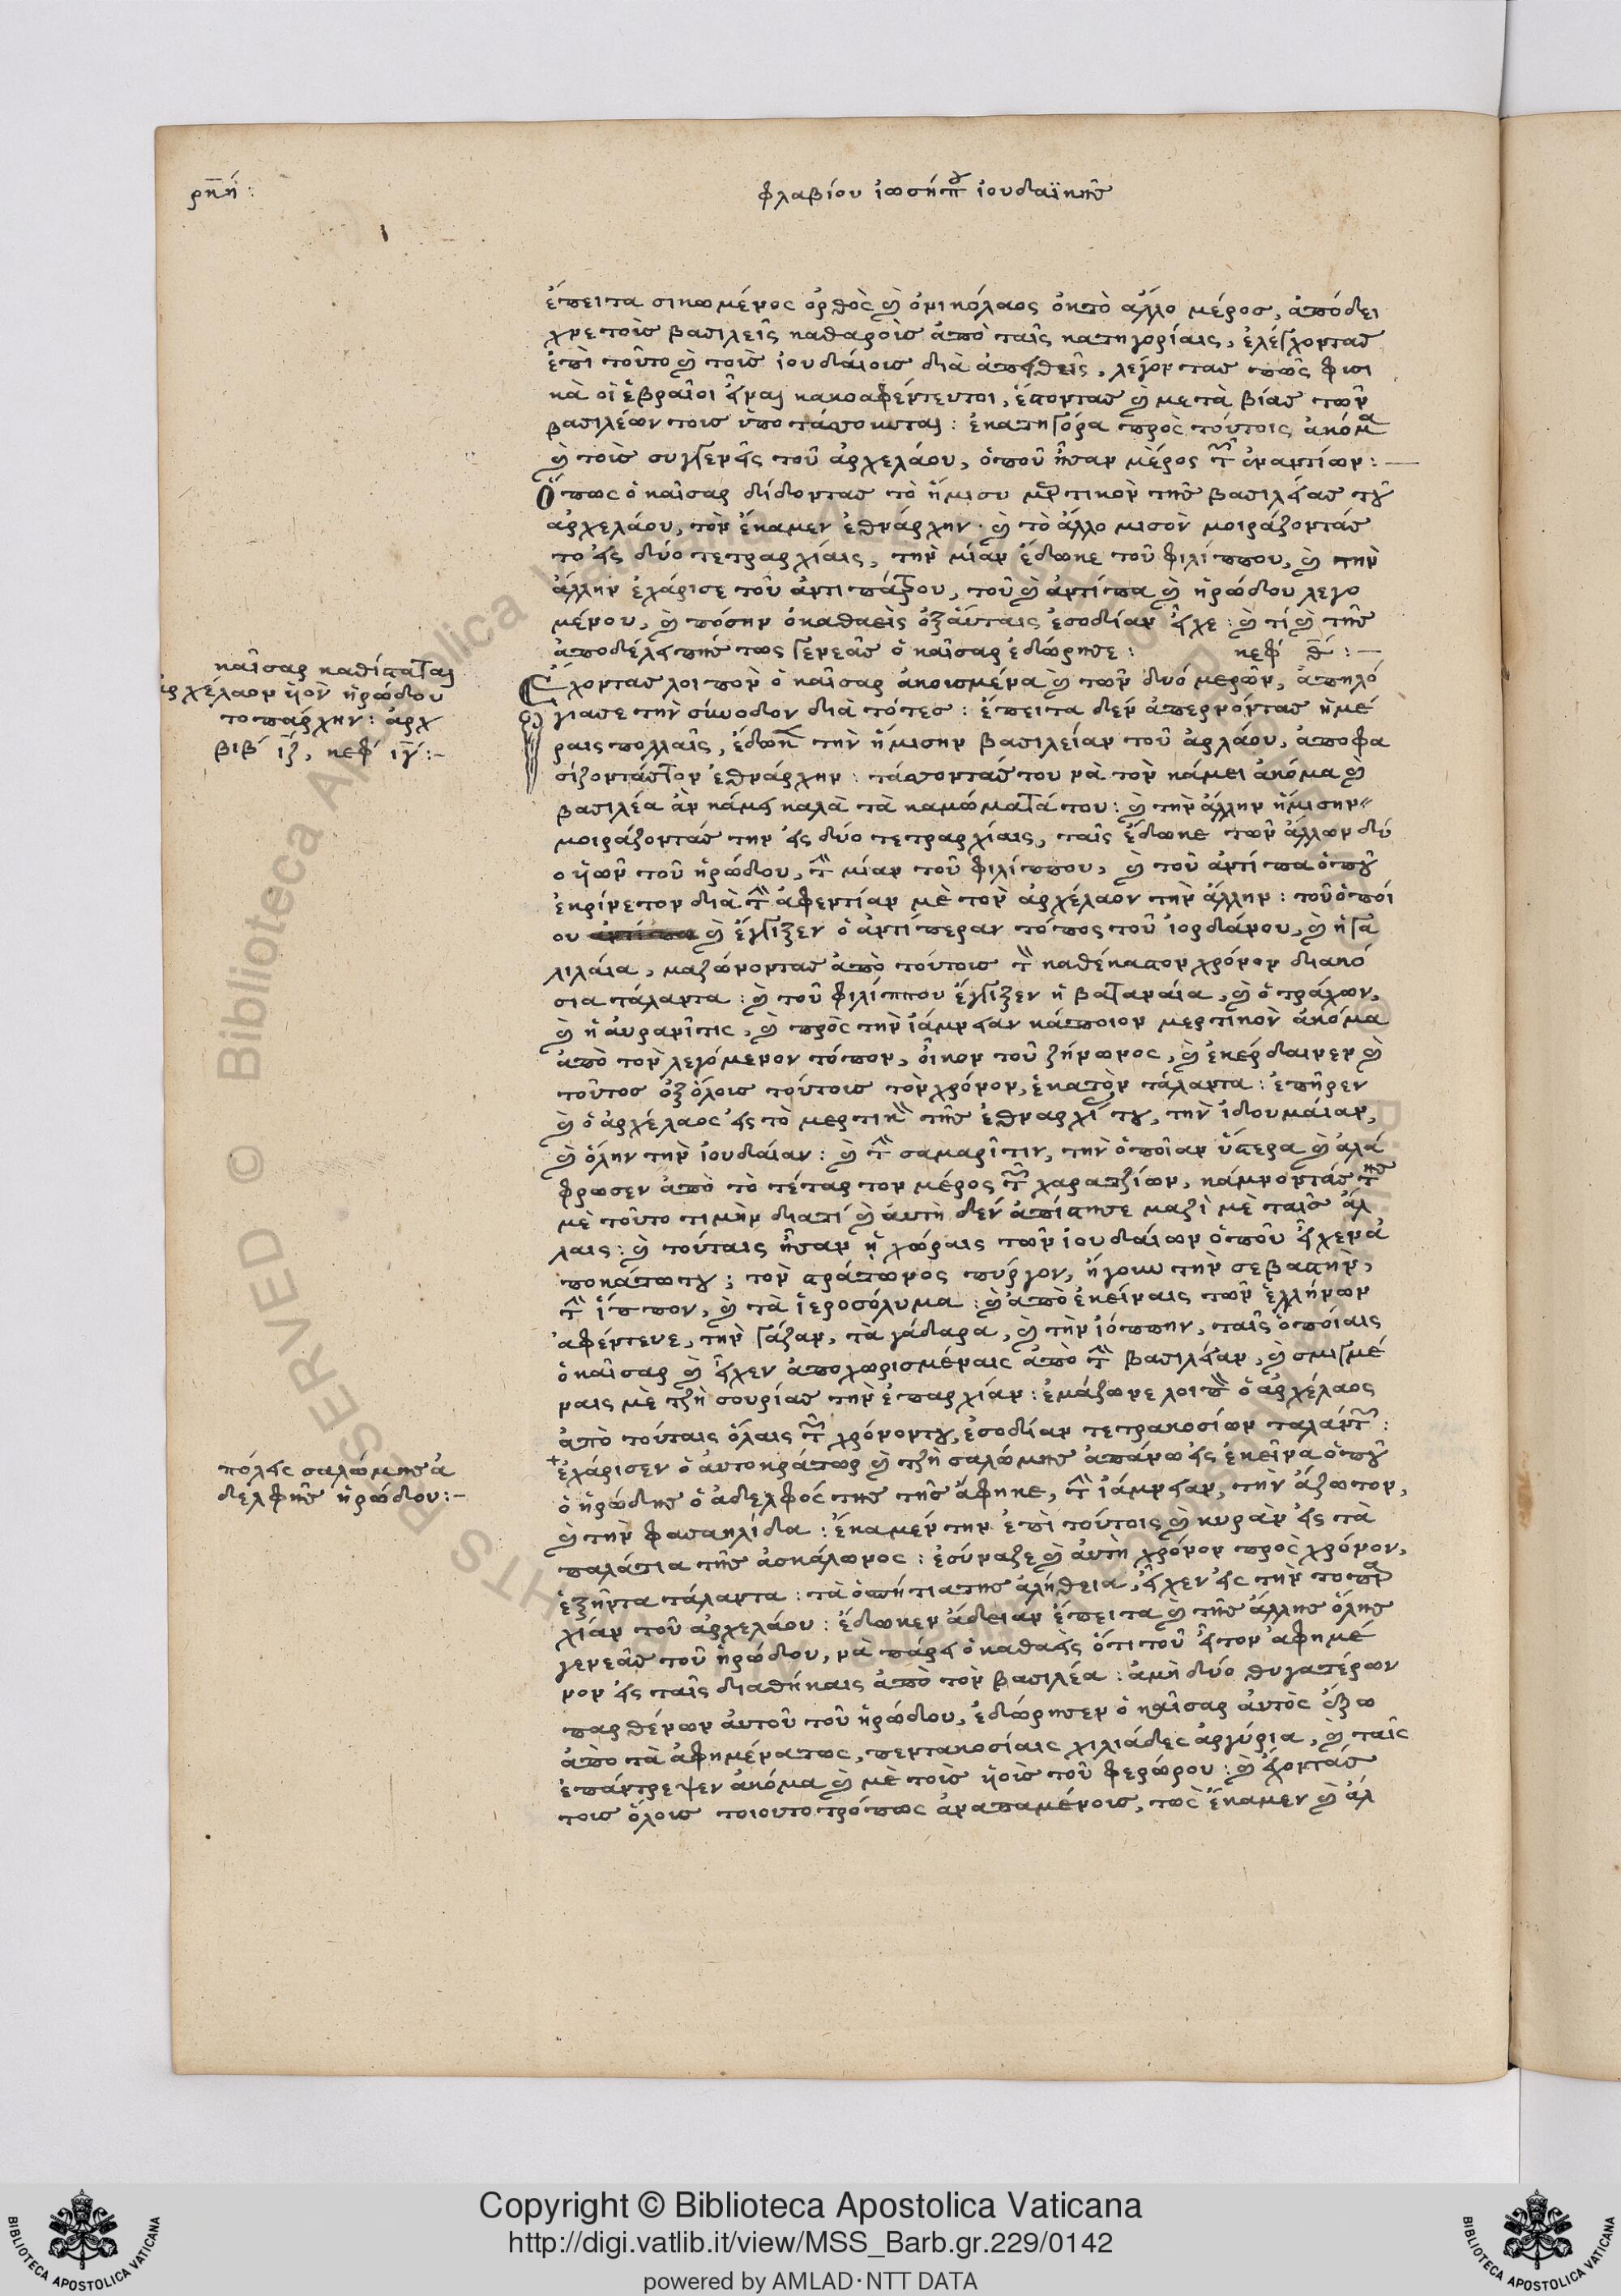 ρν̅ή:
φλαβίου ἰωσήπου ἰουδαϊκῆς
ἔπειτα σικωμένος ὀρθὸς καὶ ὁ νικόλαος ὀκτὸ ἄλλο μέρος, ἀπόδει
χνε τοὶς βασιλεῖς καθαροὶς ἀπὸ ταῖς κατηγορίαις, ἐλέγχοντας
ἐπὶ τοῦτο καὶ τοὶς ἰουδαίοις διὰ ἀπειθεῖς, λέγοντας πῶς φισι
κὰ οἱ ἑβραῖοι εἶναι κακοαφέντευτοι, ἔστοντας καὶ μετὰ βίας τῶν
βασιλέων τοις ὑποτάσσκυται: ἐκατηγόρα πρὸς τούτοις ἀκόμα
καὶ τοὶς συγγενεῖς τοῦ ἀρχελάου, ὁποῦ ἦσαν μέρος τῶν ἐναντίων:—
Ὅπως ὁ καῖσαρ δίδοντας τὸ ἥμισυ μερτικὸν τῆς βασιλείας τοῦ
ἀρχελάου, τὸν ἔκαμεν ἐθνάρχην· καὶ τὸ ἄλλο μισὸν μοιράζοντάς
το εἰς δύο τετραρχίαις, τὴν μίαν ἔδωκε τοῦ φιλίππου, καὶ τὴν
ἄλλην ἐχάρισε τοῦ ἀντιπάτρου, τοῦ καὶ ἀντίπα καὶ ἡρώδου λεγο
μένου, καὶ πόσην ὁ καθαεὶς ὀξαύταις ἐσοδίαν εἶχε: καὶ τί καὶ τῆς
ἀποδέλειπης τως γενεᾶς ὁ καῖσαρ ἐδώρησε: κεφ θ̅:—
καῖσαρ καθίσταται
ἀρχέλαον ὑιὸν ἡρώδου
τοπάρχην: ἀρχ
βιβ ιζ, κεφ ιγ:-
Ἔχοντας λοιπὸν ὁ καῖσαρ ἀκουσμένα καὶ τῶν δυό μερῶν, ἀπηλό
γιασε τὴν σύνοδον διὰ τότες: ἔπειτα δὲν ἀπερνόντας ἡμέ
ραις πολλαῖς, ἔδωκε τὴν ἥμισην βασιλείαν τοῦ ἀρλάου, ἀποφα
σίζοντάς τον ἐθνάρχην: τάσσοντάς του νὰ τὸν κάμει ἀκόμα καὶ
βασιλέα ἂν κάμει καλὰ τὰ καμώματά του: καὶ τὴν ἄλλην ἥμισην
μοιράζοντάς την εἰς δύο τετραρχίαις, ταῖς ἔδωκε τῶν ἄλλων δύ
ο ὑιῶν τοῦ ἡρώδου, τὴν μίαν τοῦ φιλίππου, καὶ τοῦ ἀντίπα ὁποῦ
ἐκρίνετον διὰ τὴν ἀφεντίαν μὲ τὸν ἀρχέλαον τὴν ἄλλην: τοῦ ὁποί
ου καὶ ἔγγιζεν ὁ ἀντίπεραν τόπος τοῦ ἰορδάνου, καὶ ἡ γα
λιλαία, μαζώνοντας ἀπὸ τούτοις τὸν καθέκαστον χρόνον διακό
σια τάλαντα: καὶ τοῦ φιλίππου ἔγγιζεν ἡ βαταναία, καὶ ὁ τράχων,
καὶ ἡ ἀυρανῖτις, καὶ πρὸς τὴν ἰάμνειαν κάποιον μερτικὸν ἀκόμα
ἀπὸ τὸν λεγόμενον τόπον, οἶκον τοῦ ζήνωνος, καὶ ἐκέρδαινεν καὶ
τοῦτος ὀξόλοις τούτοις τὸν χρόνον, ἑκατὸν τάλαντα: ἐπῆρεν
καὶ ὁ ἀρχέλαος εἰς τὸ μερτικὸν τῆς ἐθναρχί του, τὴν ἰδουμαίαν,
καὶ ὅλην τὴν ἰουδαίαν: καὶ τὴν σαμαρῖτιν, τὴν ὁποῖαν ὕστερα καὶ ἀλά
φρωσεν ἀπὸ τὸ τέταρτον μέρος τῶν χαρατζίων, κάμνοντάς της
μὲ τοῦτο τιμὴν διατί καὶ ἀυτὴ δὲν ἀπίστησε μαζὶ μὲ ταῖς ἄλ
λαις: καὶ τούταις ἦσαν ᾑ χώραις τῶν ἰουδαίων ὁποῦ εἶχεν ἀ
ποκάτωτου; τὸν στράτωνος πύργον, ἤγουν τὴν σεβαστὴν,
τὴν ἵππον, καὶ τὰ ἱεροσόλυμα: καὶ ἀπὸ ἐκείναις τῶν ἑλλήνων
ἀφέντενε, τὴν γάζαν, τὰ γάδαρα, καὶ τὴν ἰόππην, ταῖς ὁποίαις
ὁ καῖσαρ καὶ εἶχεν ἀποχωρισμέναις ἀπὸ τὴν βασιλείαν, καὶ σμιγμέ
ναις μὲ τζὴ σουρίας τὴν ἐπαρχίαν: ἐμάζωνε λοιπὸν ὁ ἀρχέλαος
ἀπὸ τούταις ὅλαις τὸν χρόνοντου, ἐσοδίαν τετρακοσίων ταλάντων:
πόλεις σαλώμης ἀ
δελφῆς ἡρώδου:-
ἐχάρισεν ὁ ἀυτοκράτωρ καὶ τζὴ σαλώμης ἀπάνω εἰς ἐκεῖνα ὁποῦ
ὁ ἡρώδης ὁ ἀδελφός της τῆς ἄφηκε, τὴν ἰάμνειαν, τὴν ἄζωτον,
καὶ τὴν φασαηλίδα: ἔκαμέν την ἐπὶ τούτοις καὶ κυρὰν εἰς τὰ
παλάτια τῆς ἀσκάλωνος: ἐσύναζε καὶ ἀυτὴ χρόνον πρὸς χρόνον,
ἑξῆντα τάλαντα: τὰ ὀσπήτιατης ἀλήθεια, εἶχεν εἰς τὴν τοπαρ
χίαν τοῦ ἀρχελάου: ἔδωκεν ἄδειαν ἔπειτα καὶ τῆς ἄλλης ὅλης
γενεᾶς τοῦ ἡρώδου, νὰ πάρει ὁ καθαεὶς ὅτι τοῦ εἶτον ἀφημέ
νον εἰς ταῖς διαθήκαις ἀπὸ τὸν βασιλέα: ἀμὴ δύο θυγατέρων
παρθένων ἀυτοῦ τοῦ ἡρώδου, ἐδώρησεν ὁ καῖσαρ ἀυτὸς ἔξω
ἀπὸ τὰ ἀφημένατως, πεντακοσίαις χιλιάδες ἀργύρια, καὶ ταῖς
ἐπάντρεψεν ἀκόμα καὶ μὲ τοὶς ὑοὶς τοῦ φερώρου: καὶ ἔχοντάς
τοις ὅλοις τοιουτοτρόπως ἀναπαμένοις, τὼς ἔκαμεν καὶ ἄλ
Copyright © Biblioteca Apostolica Vaticana
http://digi.vatlib.it/view/MSS_Barb.gr.229/0142
powered by AMLAD·NTT DATA